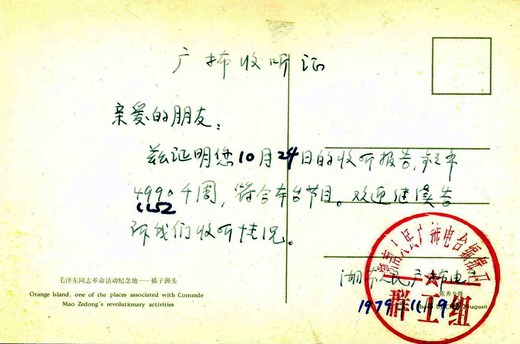 广播收听证
亲爱的朋友：
兹证明您10月24日的收听报告，频率
4990千周，符合本台节目。欢迎继续告
1152
诉我们收听情况。
湖南人民广播电台
1979.11.9
群工组
毛泽东同志革命活动纪念地——橘子洲头
Orange Island, one of the places associated with Comrade
Mao Zedong's revolutionary activities